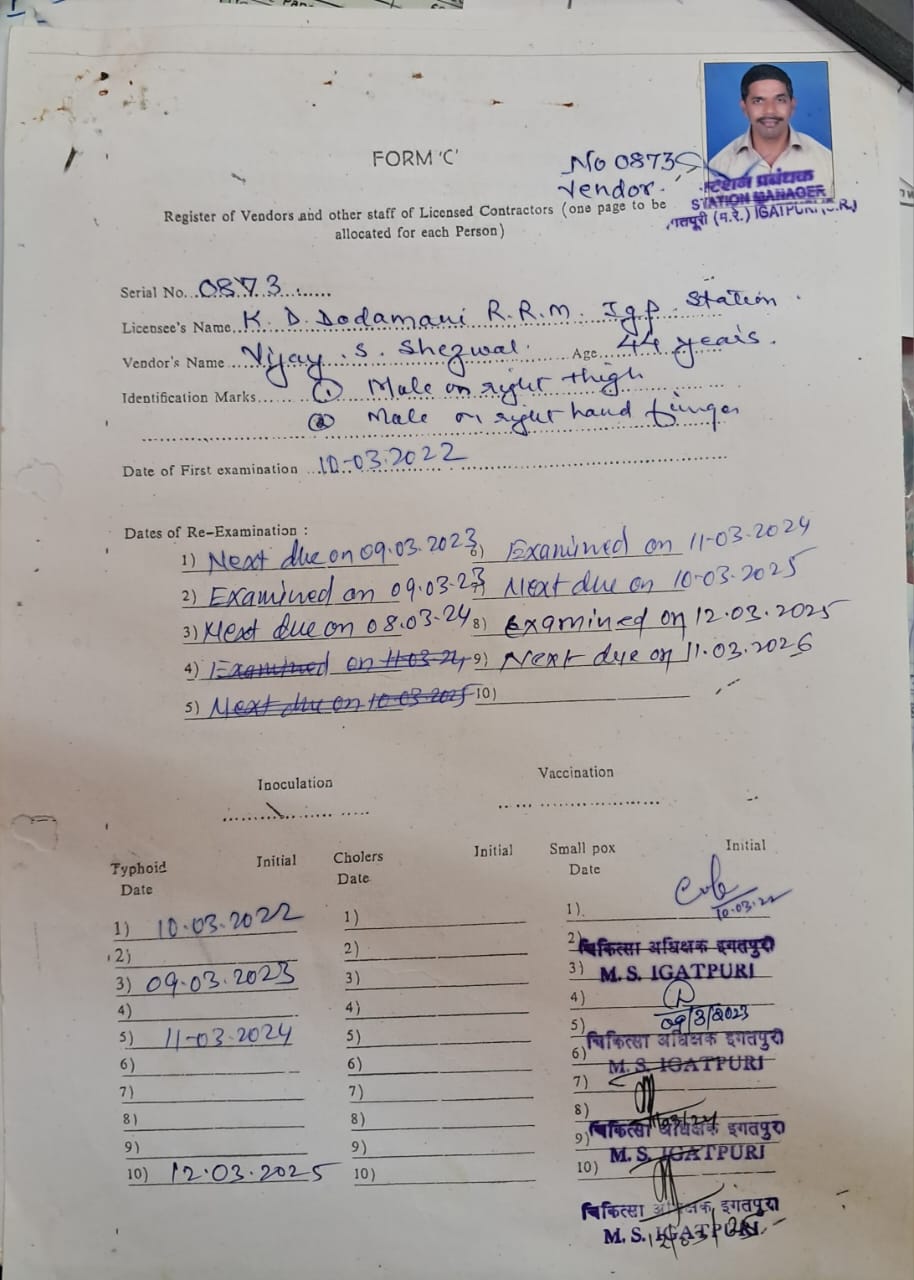 FORM 'C'
No 0873
Vendor.
स्टेशन प्रबंधक
STATION MANAGER
इगतपुरी (म.रे.) IGATPURI (C.R.)
Register of Vendors and other staff of Licensed Contractors (one page to be
allocated for each Person)
Serial No. 0873
Licensee's Name K. D. Dodamani R.R.M. Igp. Station.
Vendor's Name Vijay. S. Shezwal. Age 44 years.
Identification Marks ① Male on right thigh
② Male on right hand finger
Date of First examination 10-03.2022
Dates of Re-Examination :
1) Next due on 09.03.2023 6) Examined on 11-03-2024
2) Examined on 09.03-23 7) Next due on 10-03-2025
3) Next due on 08.03-24 8) Examined on 12.03.2025
4) Examined on 11-03-24 9) Next due on 11.03.2026
5) Next due on 10-03-2025 10)
Inoculation Vaccination
Typhoid Initial Cholers Initial Small pox Initial
Date Date Date
1) 10.03.2022 1) 1) 10.03.22
2) 2) 2) चिकित्सा अधिक्षक इगतपुरी
3) 09.03.2023 3) 3) M. S. IGATPURI
4) 4) 4)
5) 11-03-2024 5) 5) 09/3/2023
चिकित्सा अधिक्षक इगतपुरी
6) 6) 6) M. S. IGATPURI
7) 7) 7)
8) 8) 8) 11/03/24
9) 9) 9) चिकित्सा अधिक्षक इगतपुरी
10) 12.03.2025 10) 10) M. S. IGATPURI
चिकित्सा अधिक्षक इगतपुरी
M. S. IGATPURI 12/03/25